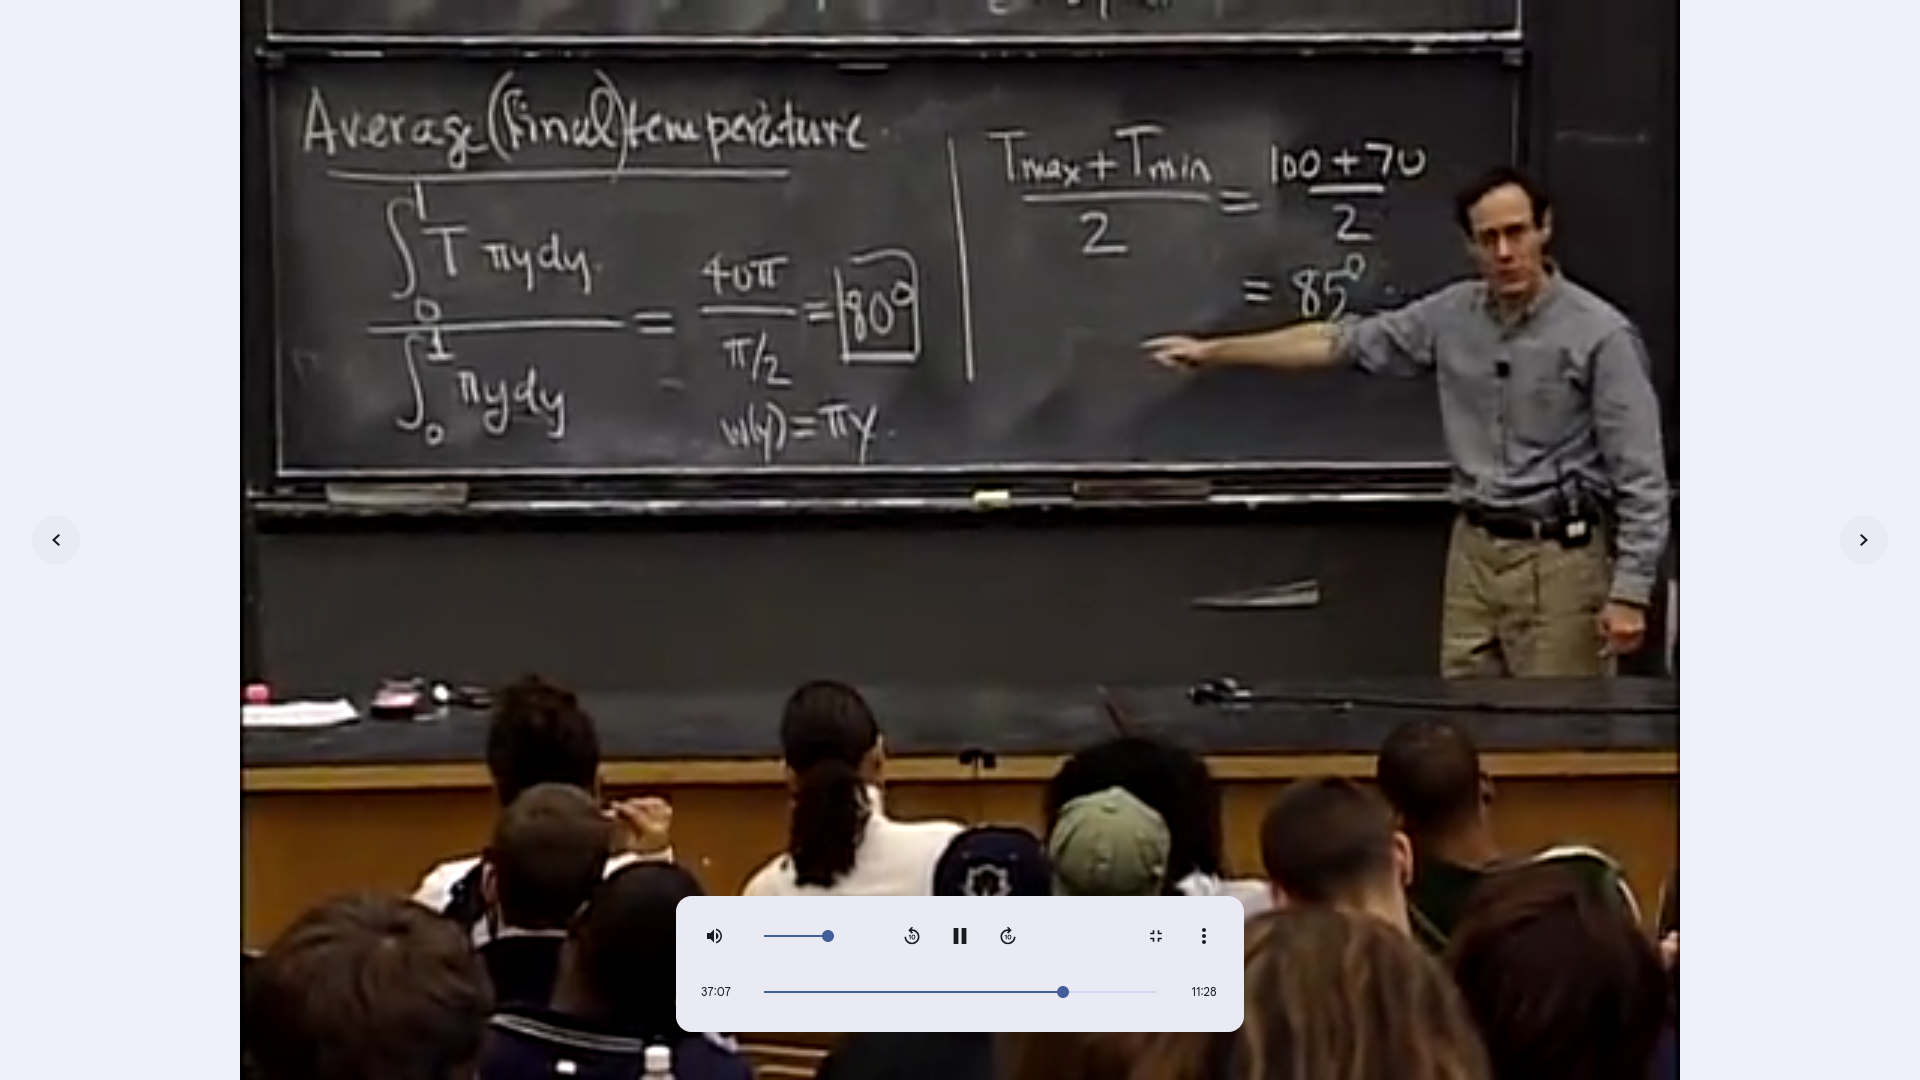 Average (final) temperature
∫₀¹ T πy dy / ∫₀¹ πy dy = 40π / π/2 = 80°
w(y) = πy.
Tmax + Tmin / 2 = 100 + 70 / 2
= 85°
10
10
37:07
11:28